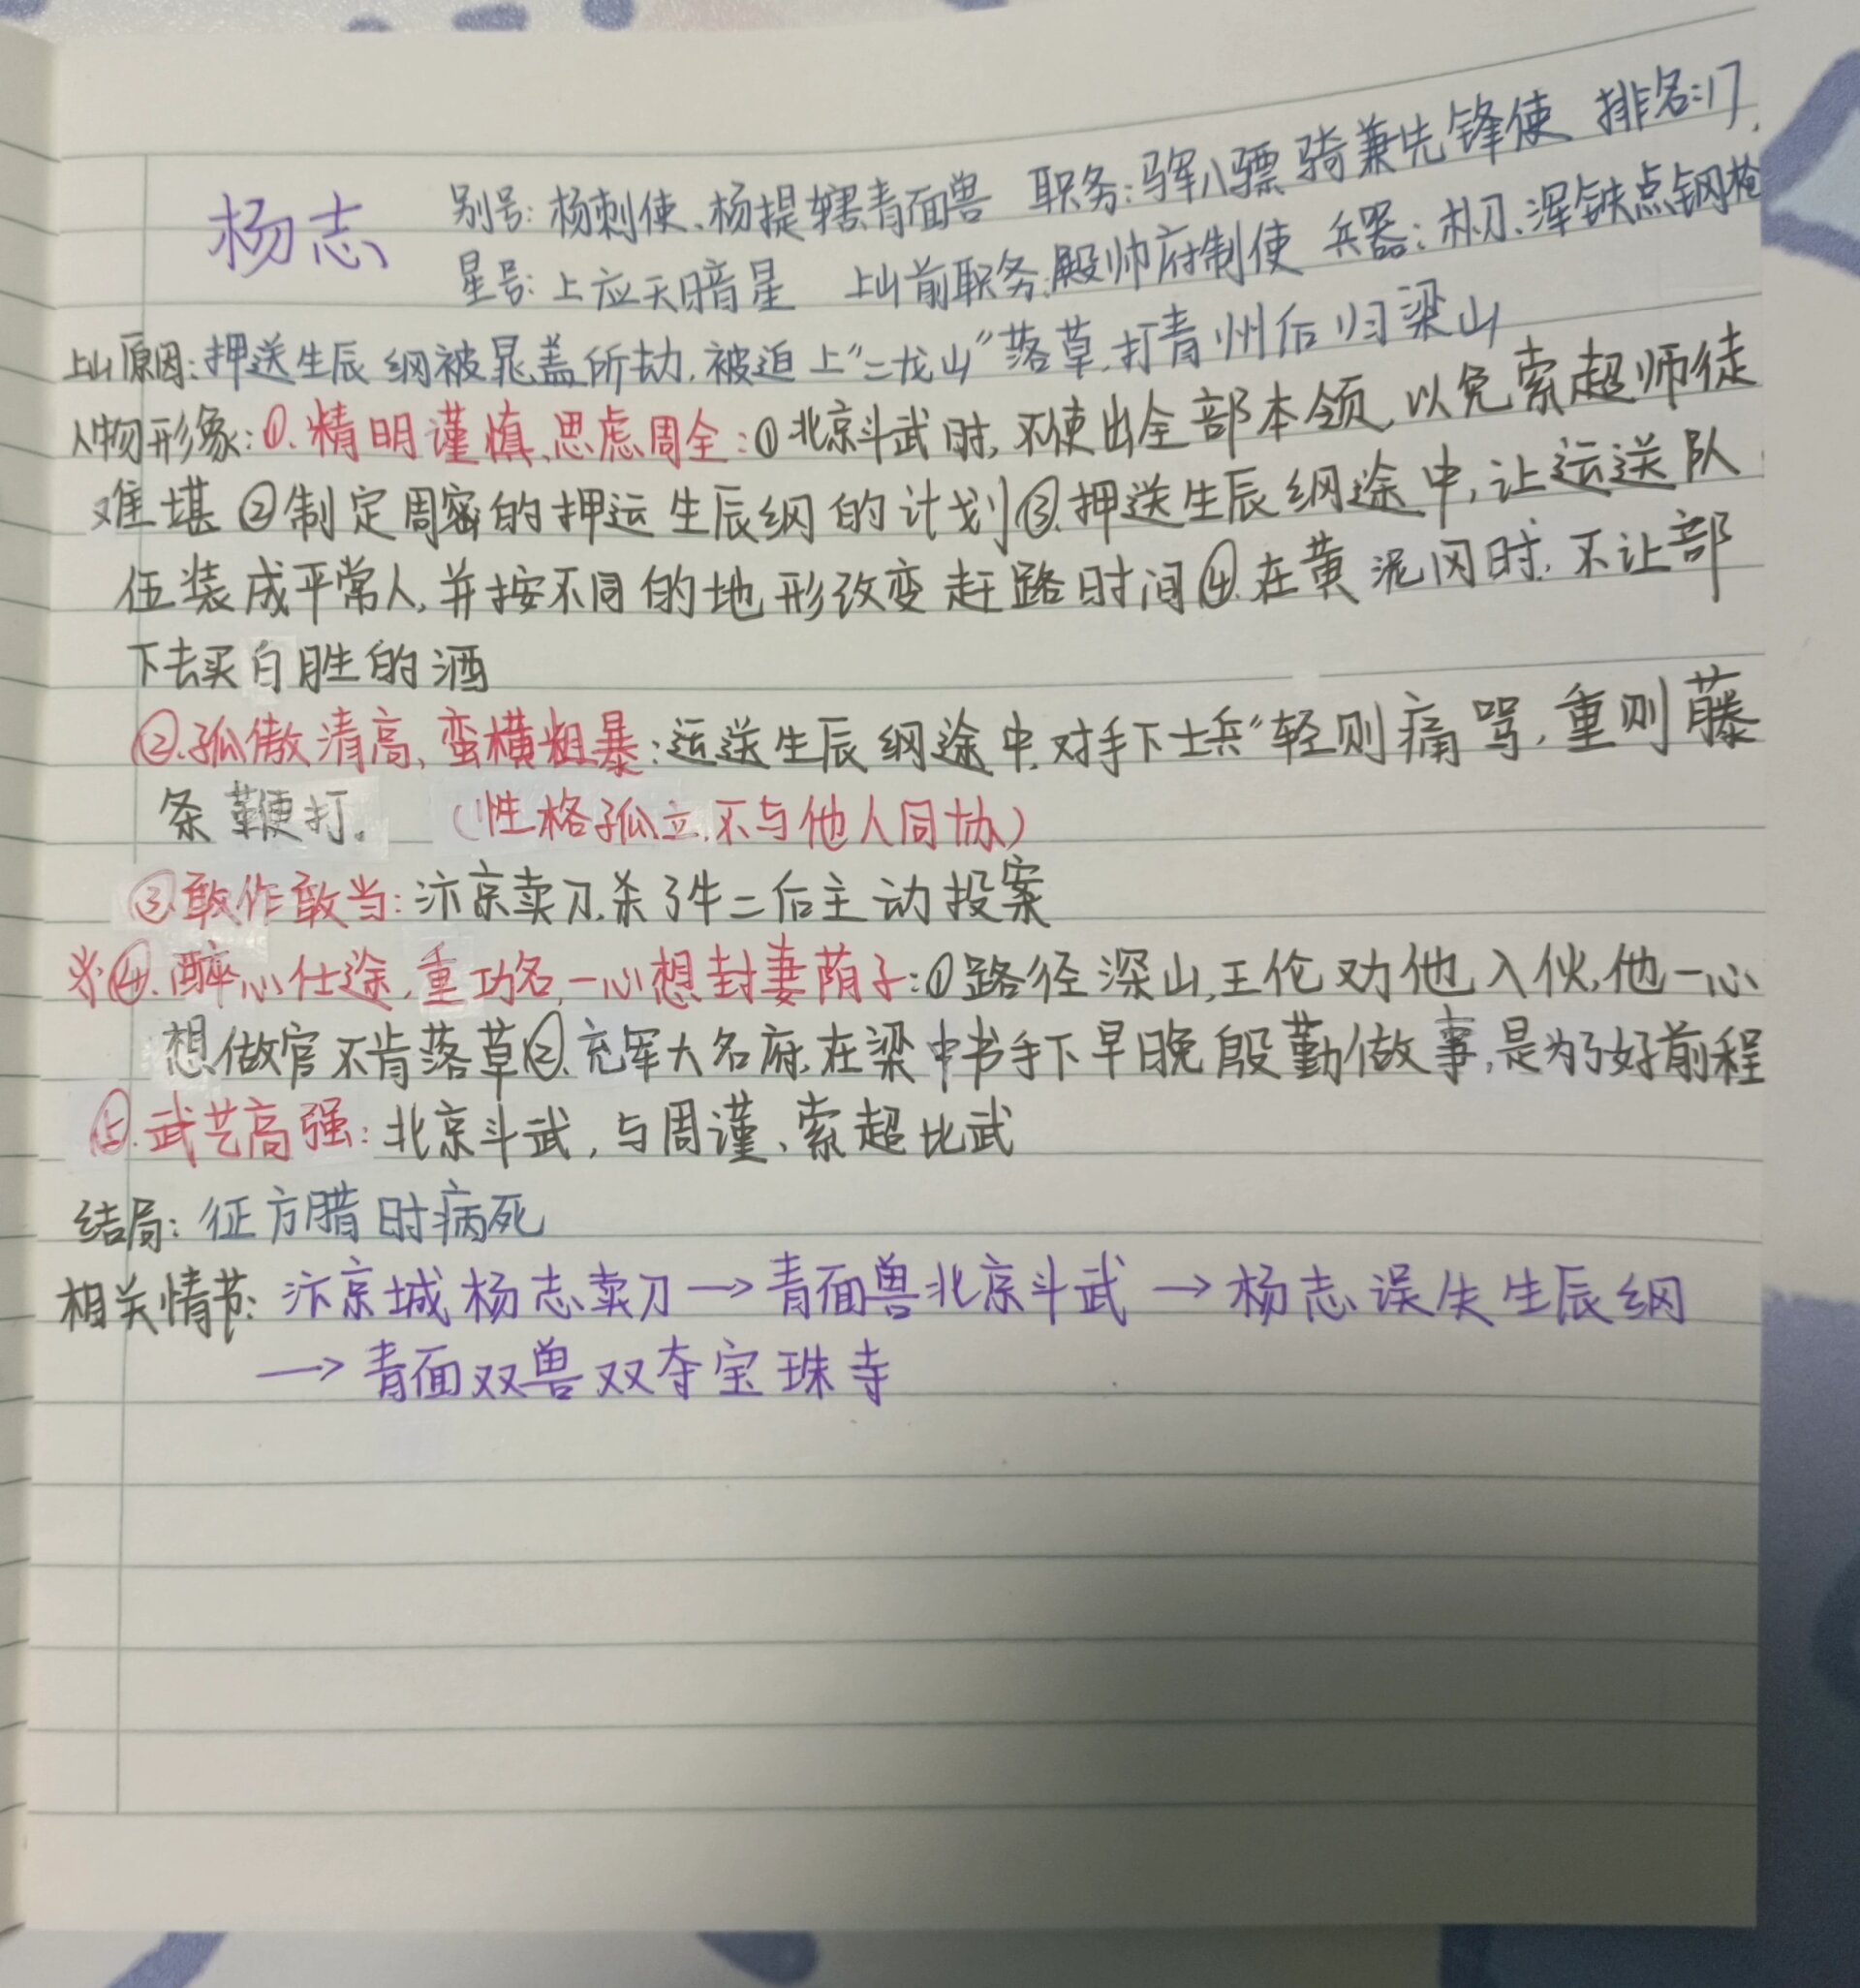 杨志
别号:杨刺使、杨提辖、青面兽 职务:马军八骠骑兼先锋使 排名:17
星号:上应天暗星 上山前职务:殿帅府制使 兵器:朴刀、浑铁点钢枪
上山原因:押送生辰纲被晁盖所劫,被迫上“二龙山”落草,打青州后归梁山
人物形象:①.精明谨慎、思虑周全:①北京斗武时,不使出全部本领,以免索超师徒
难堪 ②制定周密的押运生辰纲的计划③.押送生辰纲途中,让运送队
伍装成平常人,并按不同的地形改变赶路时间④.在黄泥冈时,不让部
下去买白胜的酒
②.孤傲清高,蛮横粗暴:运送生辰纲途中,对手下士兵“轻则痛骂,重则藤
条鞭打。 (性格孤立,不与他人同协)
③.敢作敢当:汴京卖刀,杀了牛二后主动投案
※④.醉心仕途,重功名,一心想封妻荫子:①路径深山,王伦劝他入伙,他一心
想做官不肯落草②.充军大名府,在梁中书手下早晚殷勤做事,是为了好前程
⑤.武艺高强:北京斗武,与周谨、索超比武
结局:征方腊时病死
相关情节:汴京城杨志卖刀→青面兽北京斗武→杨志误失生辰纲
→青面双兽双夺宝珠寺